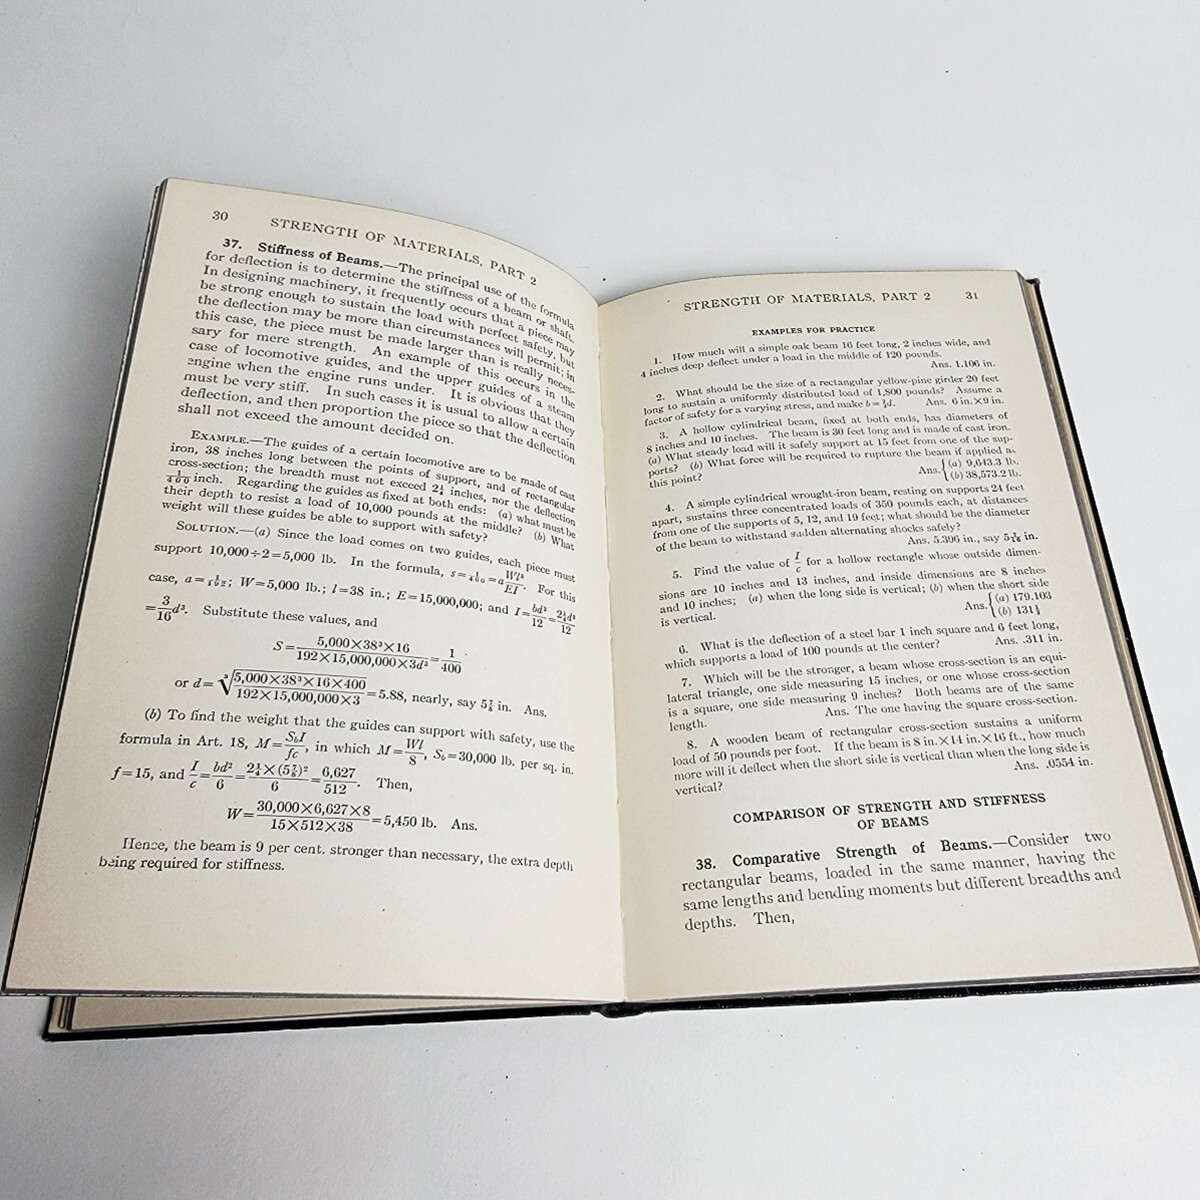 30 STRENGTH OF MATERIALS, PART 2
37. Stiffness of Beams.—The principal use of the formula
for deflection is to determine the stiffness of a beam or shaft.
In designing machinery, it frequently occurs that a piece may
be strong enough to sustain the load with perfect safety, but
the deflection may be more than circumstances will permit; in
this case, the piece must be made larger than is really neces-
sary for mere strength. An example of this occurs in the
case of locomotive guides, and the upper guides of a steam
engine when the engine runs under. It is obvious that they
must be very stiff. In such cases it is usual to allow a certain
deflection, and then proportion the piece so that the deflection
shall not exceed the amount decided on.
EXAMPLE.—The guides of a certain locomotive are to be made of cast
iron, 38 inches long between the points of support, and of rectangular
cross-section; the breadth must not exceed 2¼ inches, nor the deflection
1/400 inch. Regarding the guides as fixed at both ends: (a) what must be
their depth to resist a load of 10,000 pounds at the middle? (b) What
weight will these guides be able to support with safety?
SOLUTION.—(a) Since the load comes on two guides, each piece must
support 10,000÷2=5,000 lb. In the formula, s=1/400=a Wl³/EI. For this
case, a=1/192; W=5,000 lb.; l=38 in.; E=15,000,000; and I=bd³/12=2¼d³/12
=3/16 d³. Substitute these values, and
S=5,000×38³×16/192×15,000,000×3d³=1/400
or d=∛5,000×38³×16×400/192×15,000,000×3=5.88, nearly, say 5⅞ in. Ans.
(b) To find the weight that the guides can support with safety, use the
formula in Art. 18, M=S_bI/fc, in which M=Wl/8, S_b=30,000 lb. per sq. in.
f=15, and I/c=bd²/6=2¼×(5⅞)²/6=6,627/512. Then,
W=30,000×6,627×8/15×512×38=5,450 lb. Ans.
Hence, the beam is 9 per cent. stronger than necessary, the extra depth
being required for stiffness.
STRENGTH OF MATERIALS, PART 2 31
EXAMPLES FOR PRACTICE
1. How much will a simple oak beam 16 feet long, 2 inches wide, and
4 inches deep deflect under a load in the middle of 120 pounds.
Ans. 1.106 in.
2. What should be the size of a rectangular yellow-pine girder 20 feet
long to sustain a uniformly distributed load of 1,800 pounds? Assume a
factor of safety for a varying stress, and make b=⅔d. Ans. 6 in.×9 in.
3. A hollow cylindrical beam, fixed at both ends, has diameters of
8 inches and 10 inches. The beam is 30 feet long and is made of cast iron.
(a) What steady load will it safely support at 15 feet from one of the sup-
ports? (b) What force will be required to rupture the beam if applied at
this point? Ans. {(a) 9,643.3 lb.
(b) 38,573.2 lb.
4. A simple cylindrical wrought-iron beam, resting on supports 24 feet
apart, sustains three concentrated loads of 350 pounds each, at distances
from one of the supports of 5, 12, and 19 feet; what should be the diameter
of the beam to withstand sudden alternating shocks safely?
Ans. 5.396 in., say in.
5. Find the value of I/c for a hollow rectangle whose outside dimen-
sions are 10 inches and 13 inches, and inside dimensions are 8 inches
and 10 inches; (a) when the long side is vertical; (b) when the short side
is vertical. Ans. {(a) 179.103
(b) 131⅓
6. What is the deflection of a steel bar 1 inch square and 6 feet long,
which supports a load of 100 pounds at the center? Ans. .311 in.
7. Which will be the stronger, a beam whose cross-section is an equi-
lateral triangle, one side measuring 15 inches, or one whose cross-section
is a square, one side measuring 9 inches? Both beams are of the same
length. Ans. The one having the square cross-section.
8. A wooden beam of rectangular cross-section sustains a uniform
load of 50 pounds per foot. If the beam is 8 in.×14 in.×16 ft., how much
more will it deflect when the short side is vertical than when the long side is
vertical? Ans. .0554 in.
COMPARISON OF STRENGTH AND STIFFNESS
OF BEAMS
38. Comparative Strength of Beams.—Consider two
rectangular beams, loaded in the same manner, having the
same lengths and bending moments but different breadths and
depths. Then,